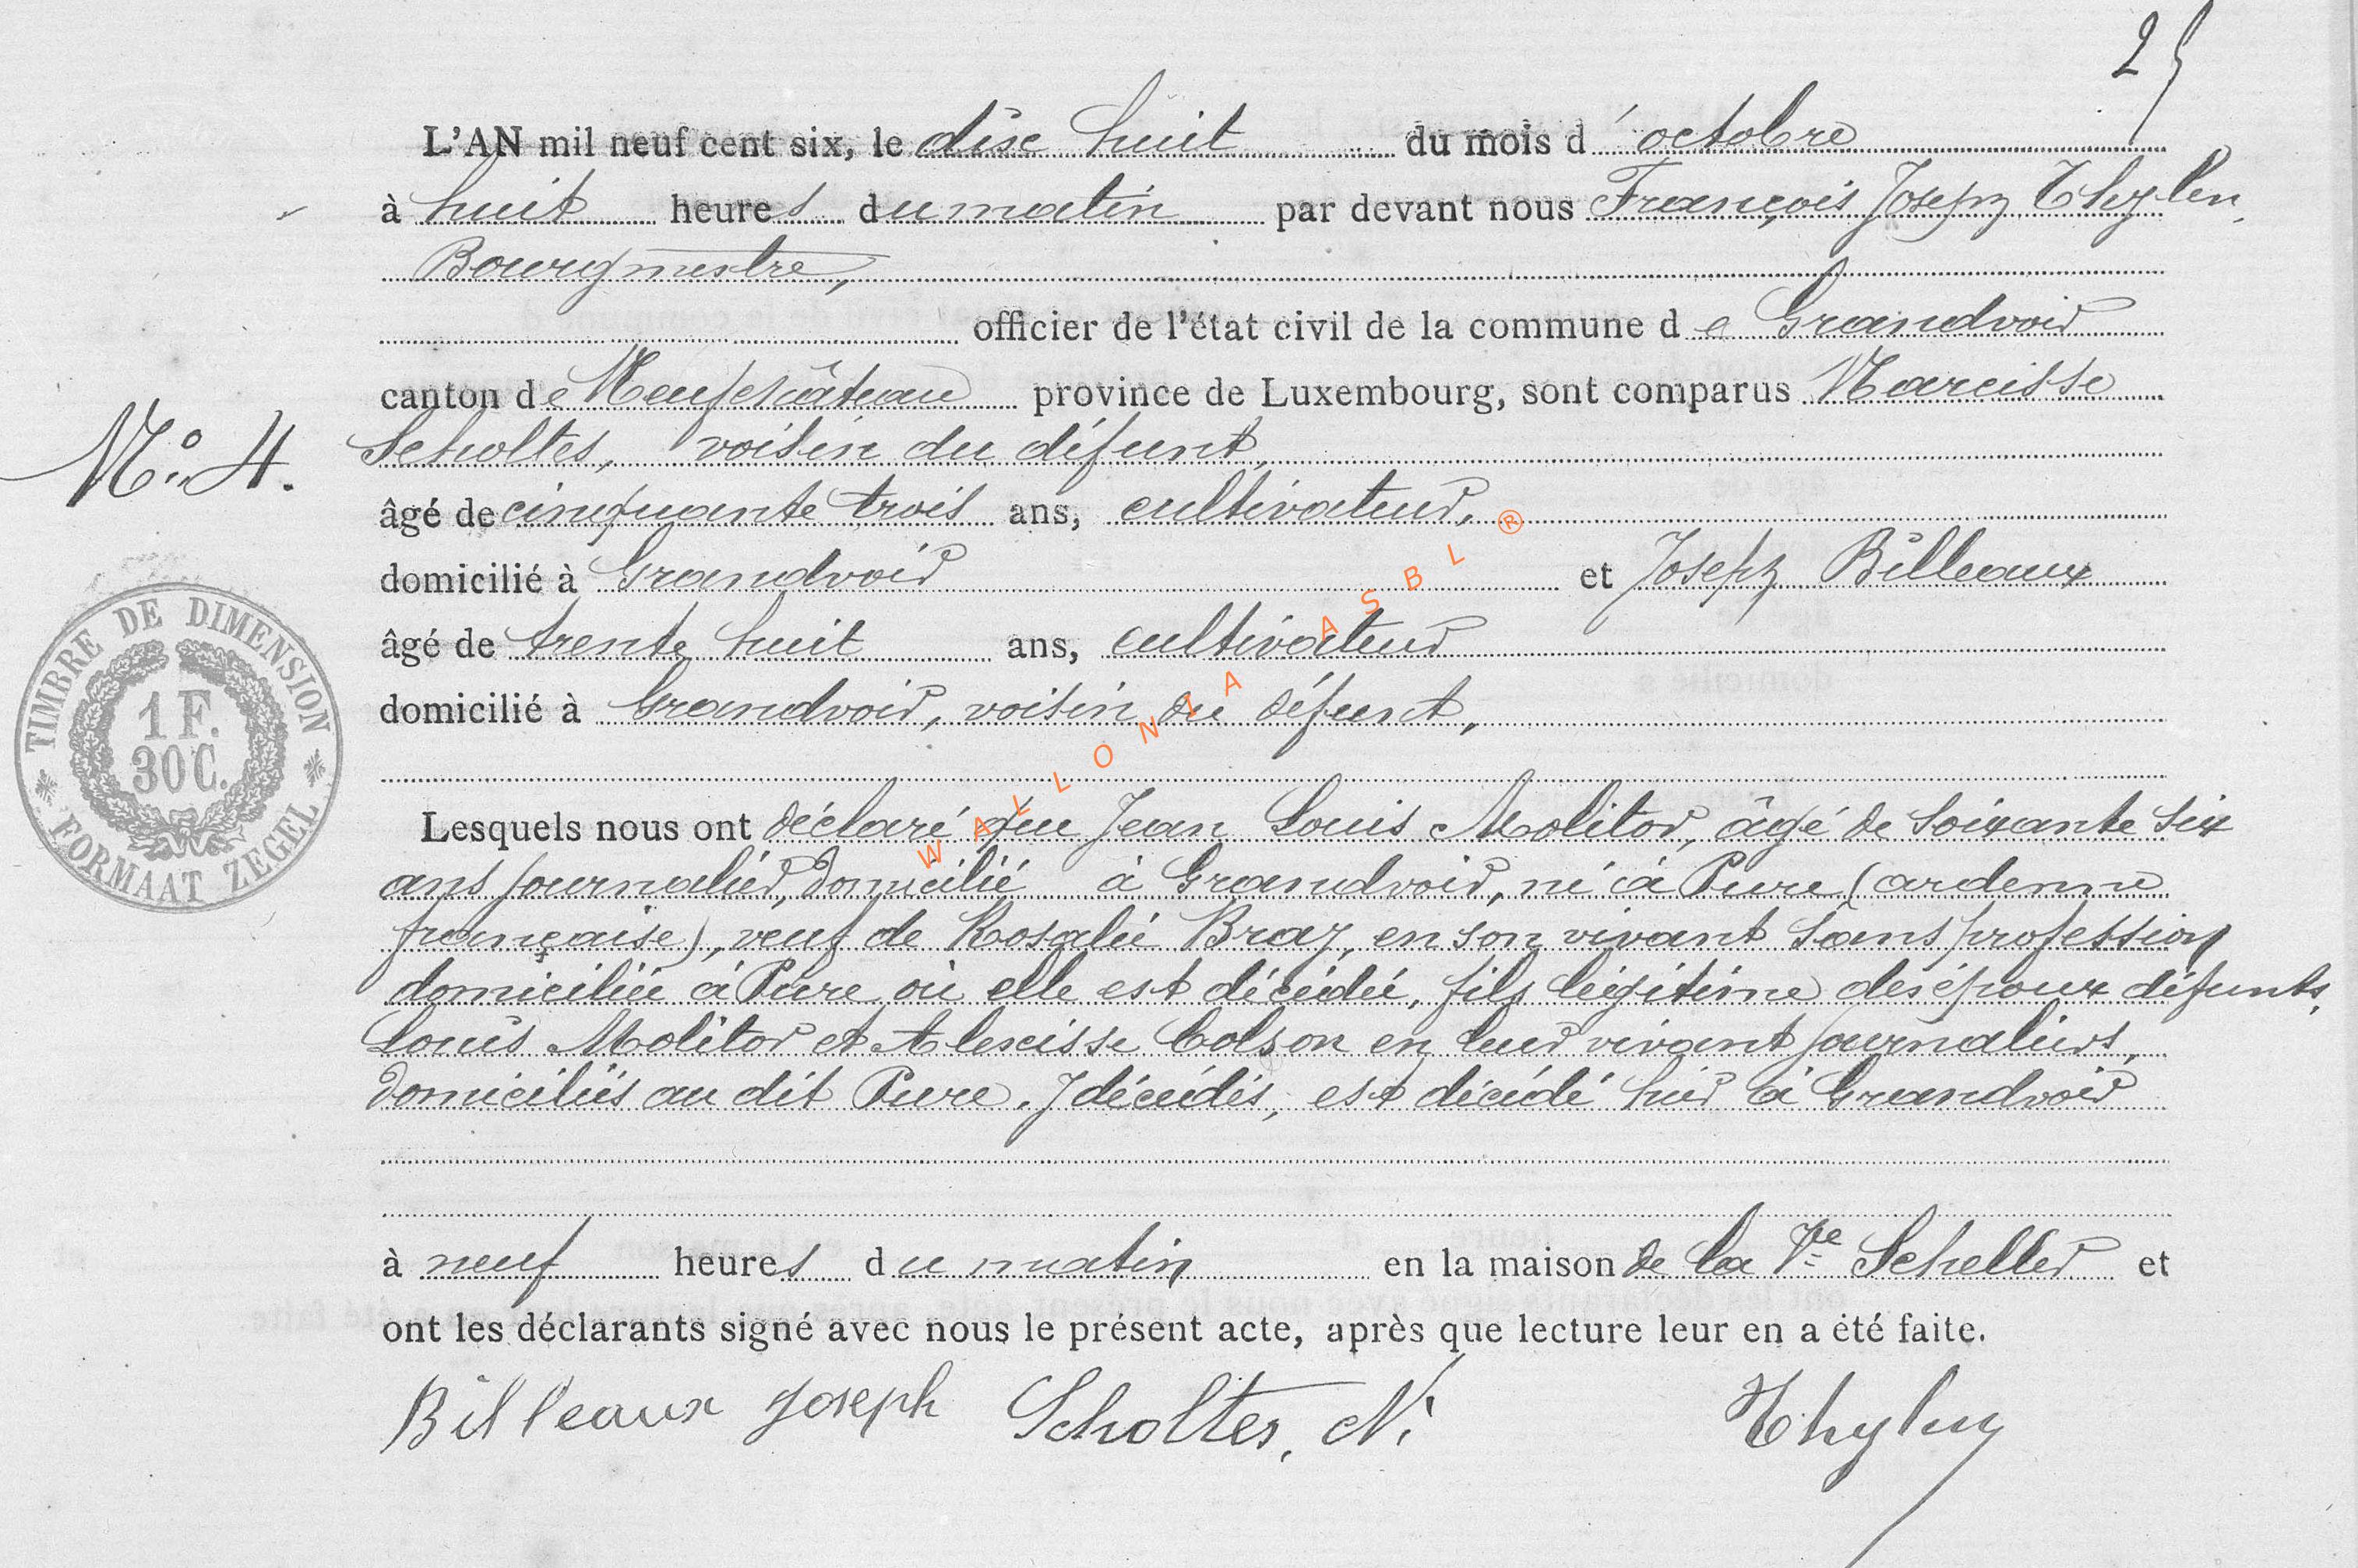 25
L'AN mil neuf cent six, le dix huit du mois d'octobre
à huit heures du matin par devant nous François Joseph Thylen,
Bourgmestre,
officier de l'état civil de la commune de Grandvoir
canton de Neufchâteau province de Luxembourg, sont comparus Narcisse
N° 4. Scholtes, voisin du défunt,
âgé de cinquante trois ans, cultivateur,
domicilié à Grandvoir et Joseph Billeaux
âgé de trente huit ans, cultivateur
domicilié à Grandvoir, voisin du défunt,
TIMBRE DE DIMENSION
1 F.
30 C.
FORMAAT ZEGEL
Lesquels nous ont déclaré que Jean Louis Molitor, âgé de soixante six
ans journalier, domicilié à Grandvoir, né à Pure (ardenne
française), veuf de Rosalie Braz, en son vivant sans profession
domiciliée à Pure où elle est décédée, fils légitime des époux défunts,
Louis Molitor et Alexisse Colson en leur vivant journaliers,
domiciliés au dit Pure. Y décédés, est décédé hier à Grandvoir
à neuf heures du matin en la maison de la Vve Scheller et
ont les déclarants signé avec nous le présent acte, après que lecture leur en a été faite.
Billeaux Joseph Scholtes, N. Thylen
WALLONIA ASBL ®